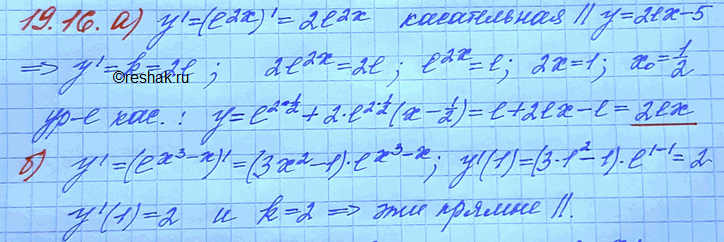 19.16. а) y' = (e^{2x})' = 2e^{2x} касательная || y = 2ex - 5
=> y' = k = 2e ; 2e^{2x} = 2e ; e^{2x} = e ; 2x = 1 ; x₀ = 1/2
©reshak.ru
ур-е кас. : y = e^{2·1/2} + 2·e^{2·1/2}(x - 1/2) = e + 2ex - e = 2ex
б) y' = (e^{x³-x})' = (3x² - 1)·e^{x³-x} ; y'(1) = (3·1² - 1)·e^{1-1} = 2
y'(1) = 2 и k = 2 => эти прямые ||.